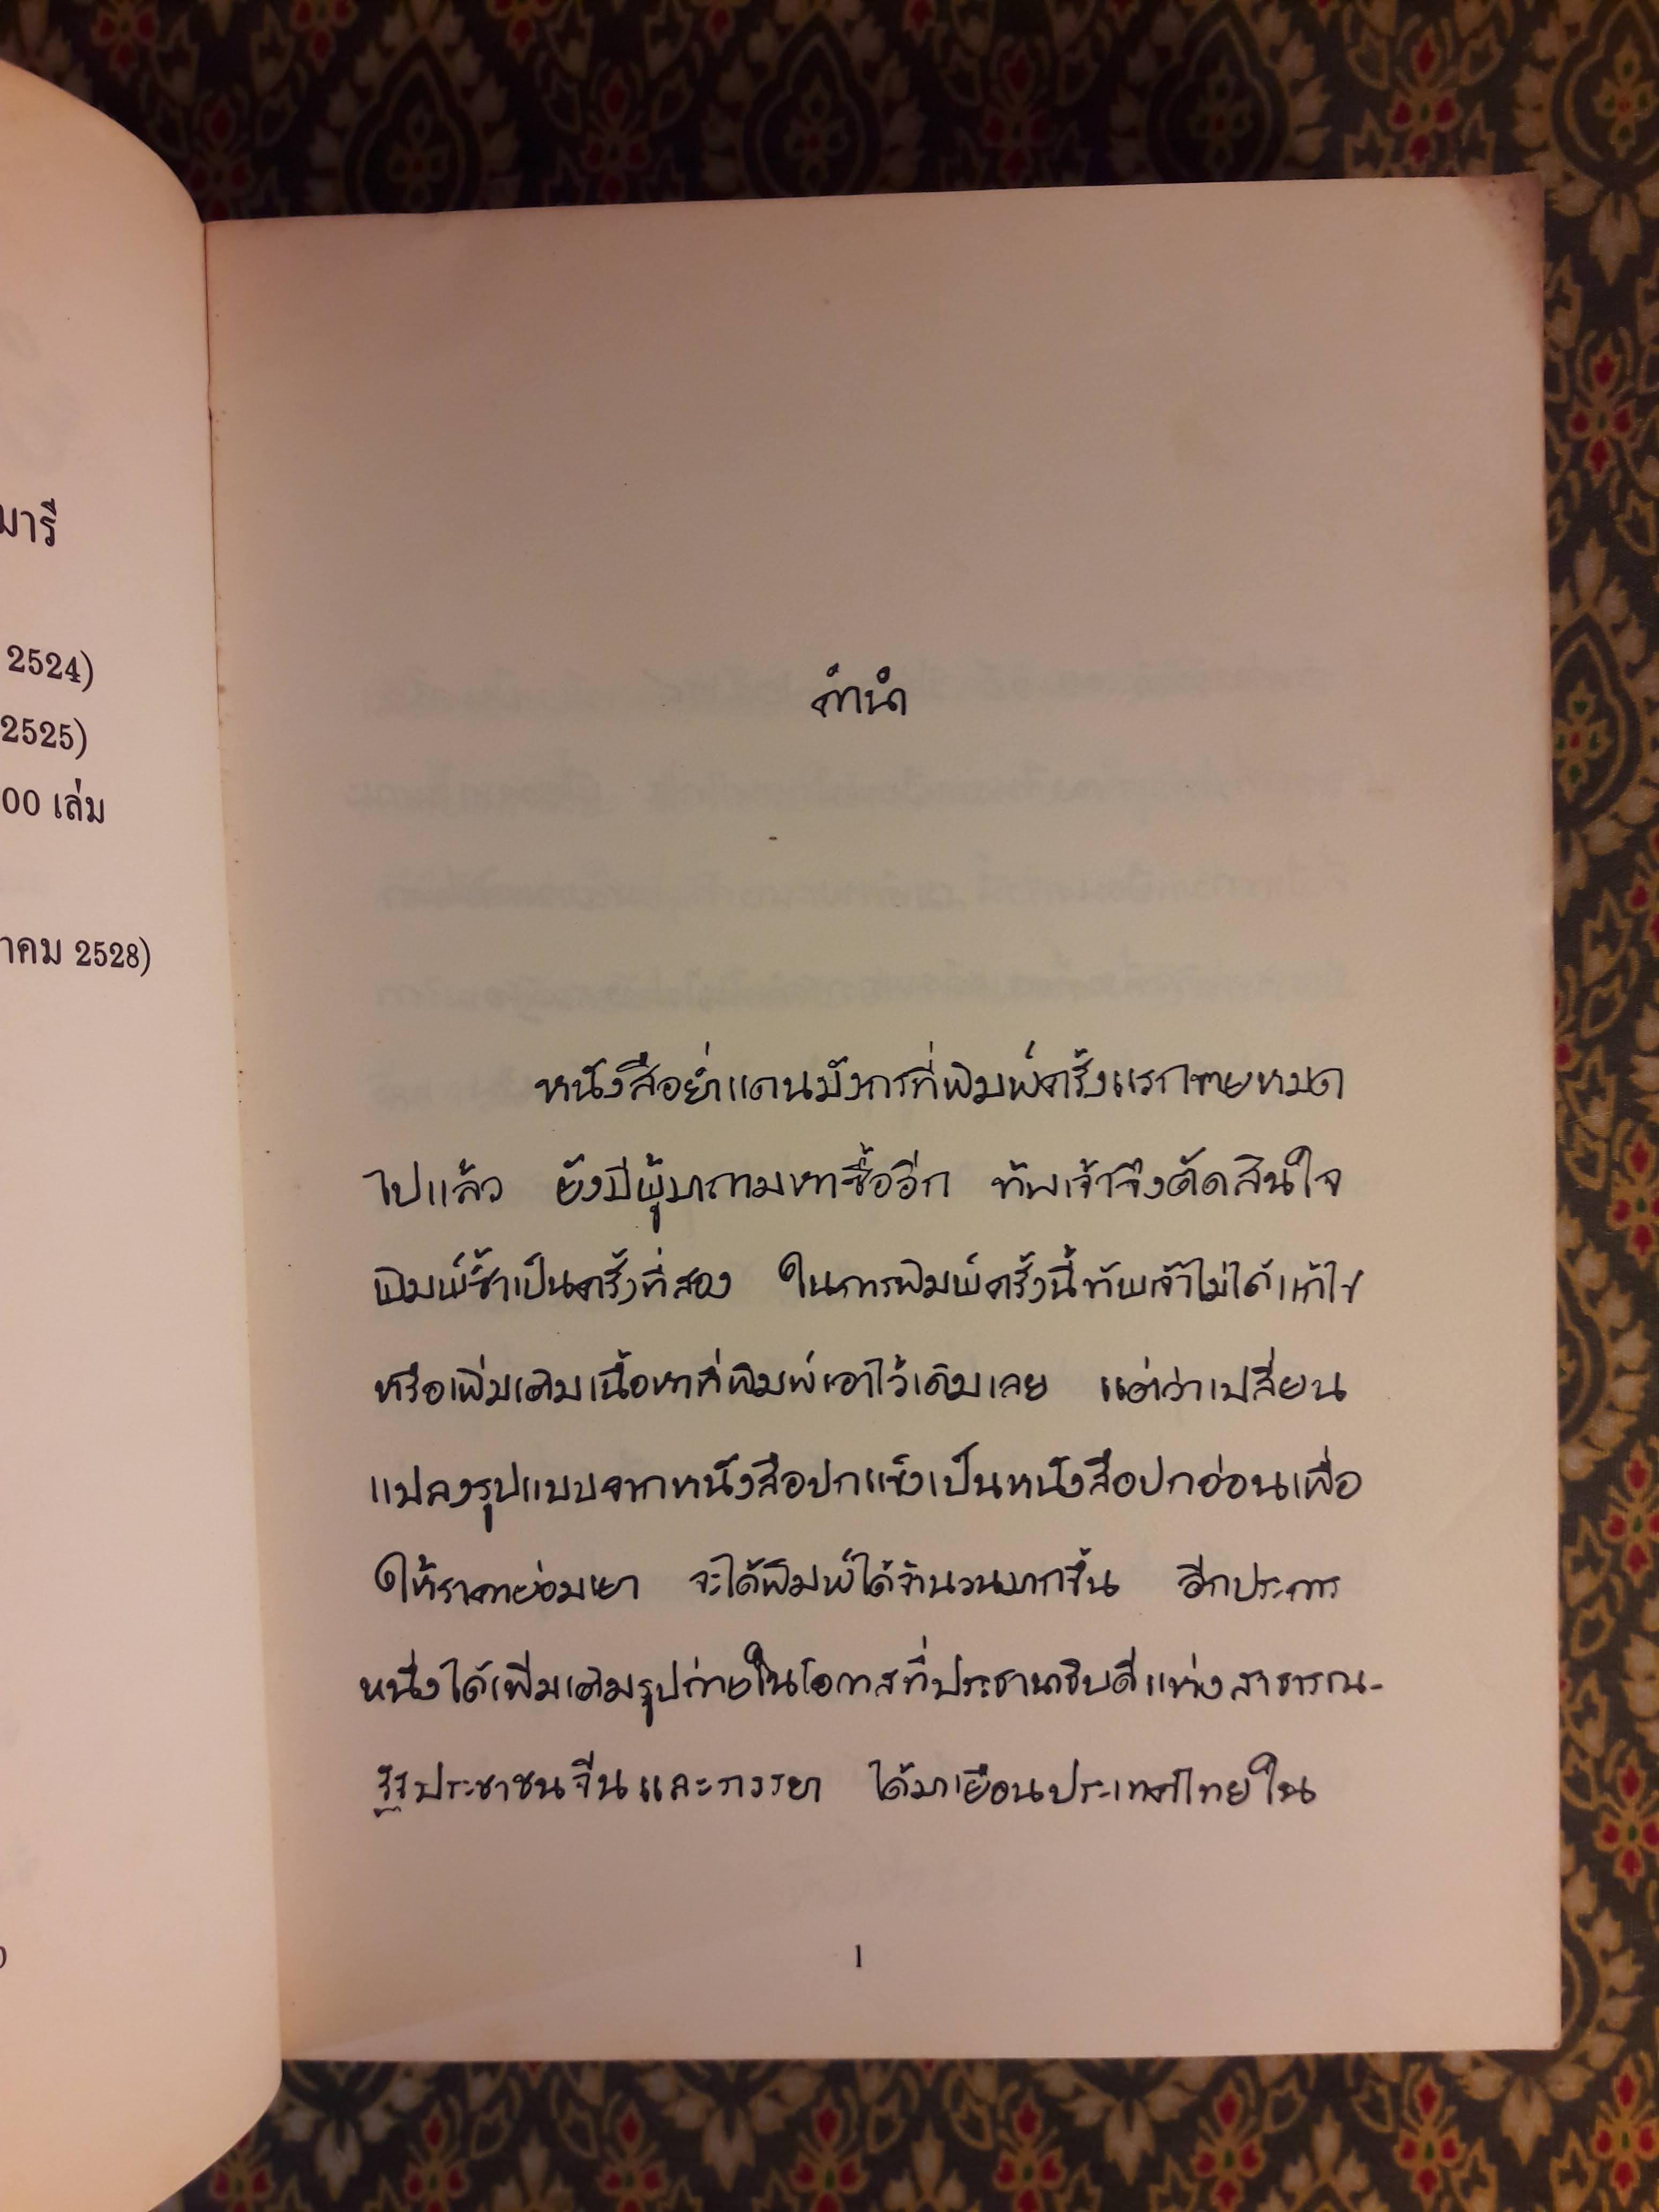 มารี
2524)
2525)
00 เล่ม
าคม 2528)
คำนำ
หนังสือย่ำแดนมังกรที่พิมพ์ครั้งแรกขายหมด
ไปแล้ว ยังมีผู้มาถามหาซื้ออีก ข้าพเจ้าจึงตัดสินใจ
พิมพ์ซ้ำเป็นครั้งที่สอง ในการพิมพ์ครั้งนี้ข้าพเจ้าไม่ได้แก้ไข
หรือเพิ่มเติมเนื้อหาที่พิมพ์เอาไว้เดิมเลย แต่ว่าเปลี่ยน
แปลงรูปแบบจากหนังสือปกแข็งเป็นหนังสือปกอ่อนเพื่อ
ให้ราคาย่อมเยา จะได้พิมพ์ได้จำนวนมากขึ้น อีกประการ
หนึ่งได้เพิ่มเติมรูปถ่ายในโอกาสที่ประธานาธิบดีแห่งสาธารณ-
รัฐประชาชนจีนและภรรยา ได้มาเยือนประเทศไทยใน
1